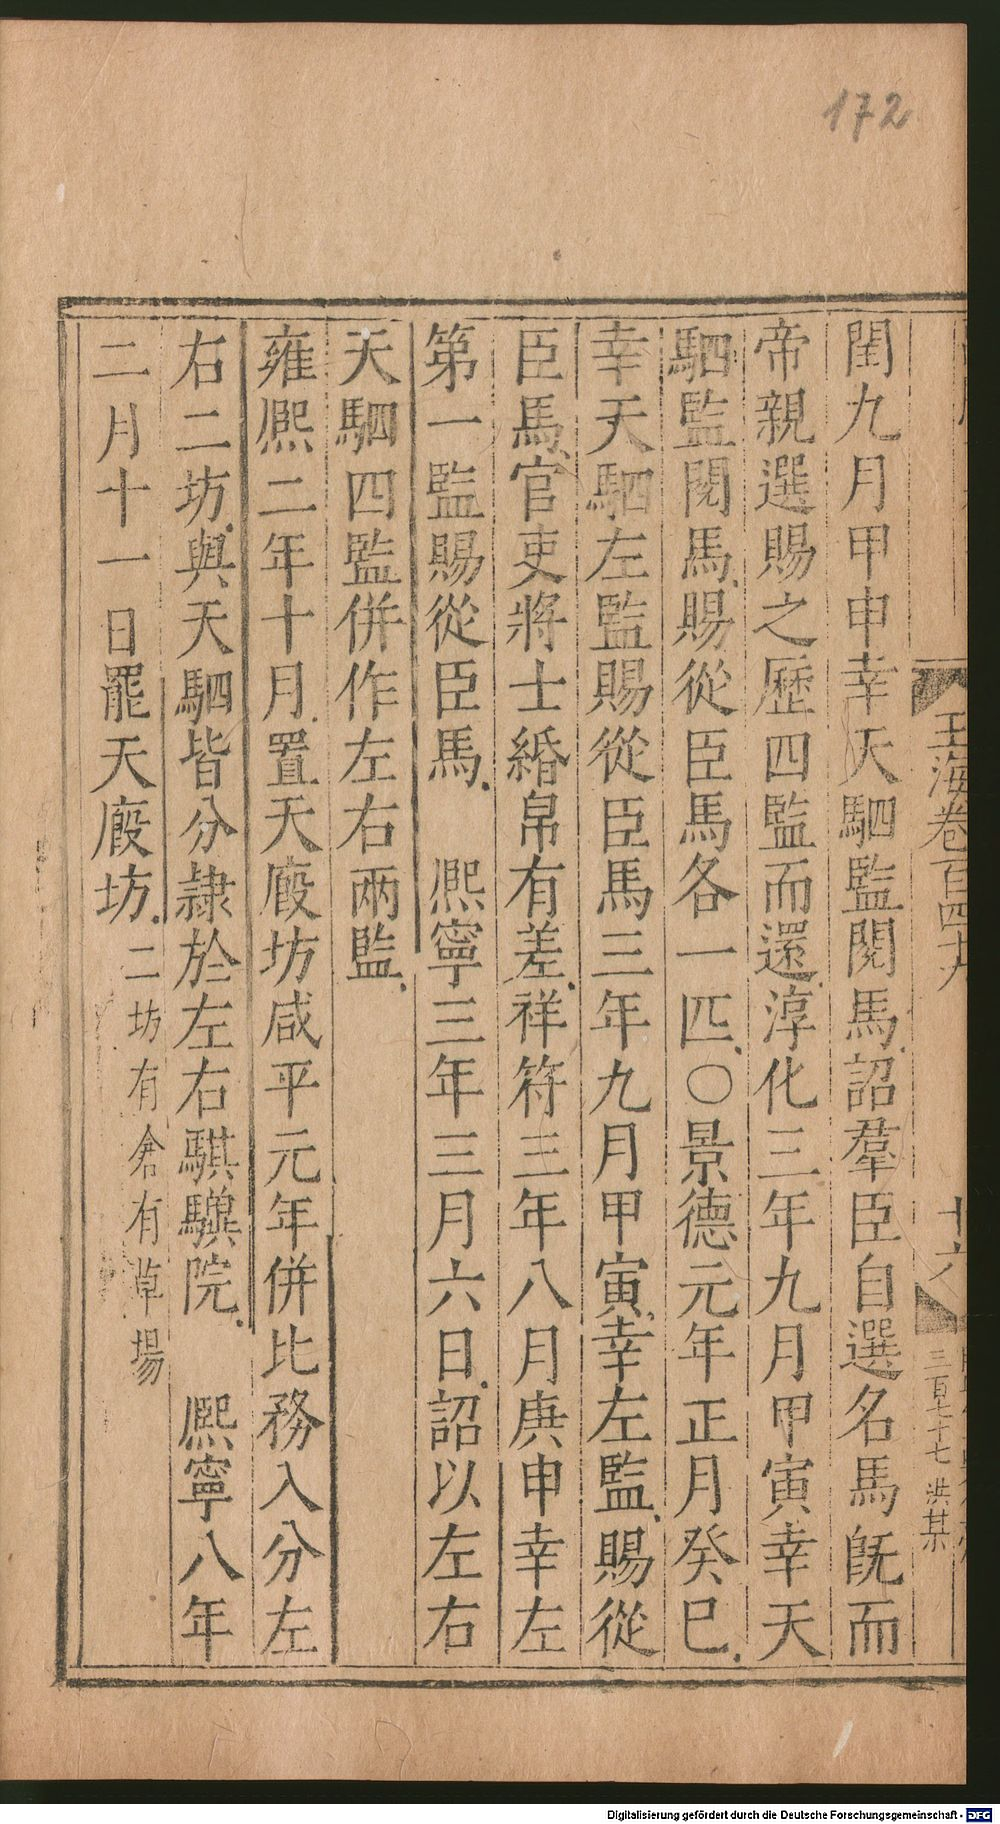 172
玉海卷百四十九
十六
三百七十七 洪其
閏九月甲申幸天駟監閱馬詔羣臣自選名馬旣而
帝親選賜之歷四監而還淳化三年九月甲寅幸天
駟監閱馬賜從臣馬各一匹○景德元年正月癸巳
幸天駟左監賜從臣馬三年九月甲寅幸左監賜從
臣馬官吏將士緡帛有差祥符三年八月庚申幸左
第一監賜從臣馬 熈寧三年三月六日詔以左右
天駟四監併作左右兩監
雍熈二年十月置天廄坊咸平元年併比務入分左
右二坊與天駟皆分隷於左右騏驥院 熈寧八年
二月十一日罷天廄坊二坊有倉有草場
Digitalisierung gefördert durch die Deutsche Forschungsgemeinschaft - DFG